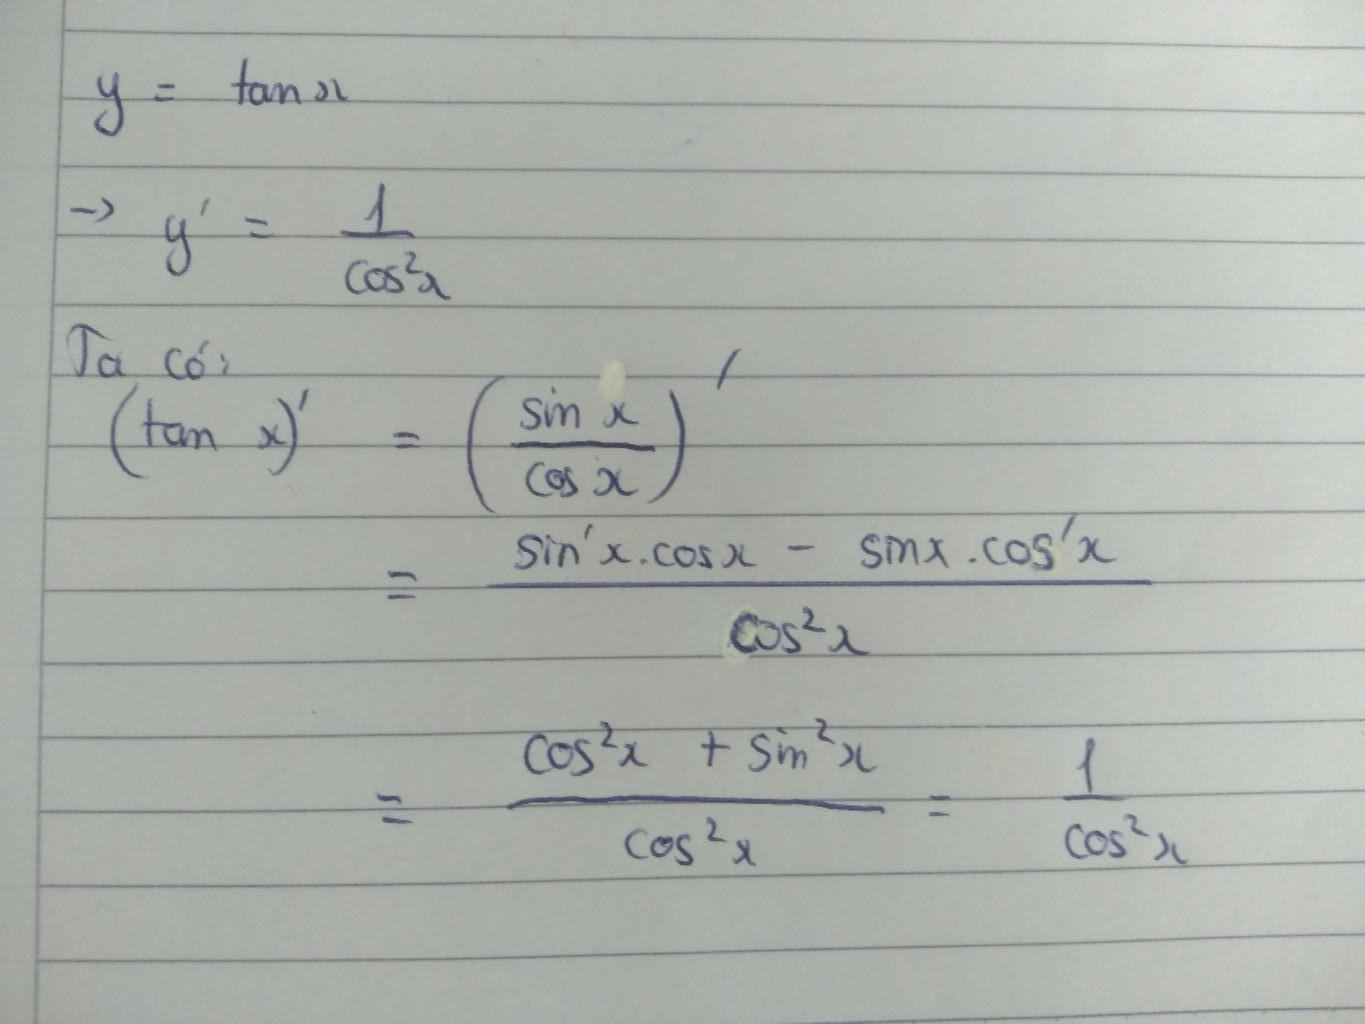 y = tan x
→ y' = 1/cos²x
Ta có:
(tan x)' = (sin x/cos x)'
= (sin'x.cosx - sinx.cos'x)/cos²x
= (cos²x + sin²x)/cos²x = 1/cos²x